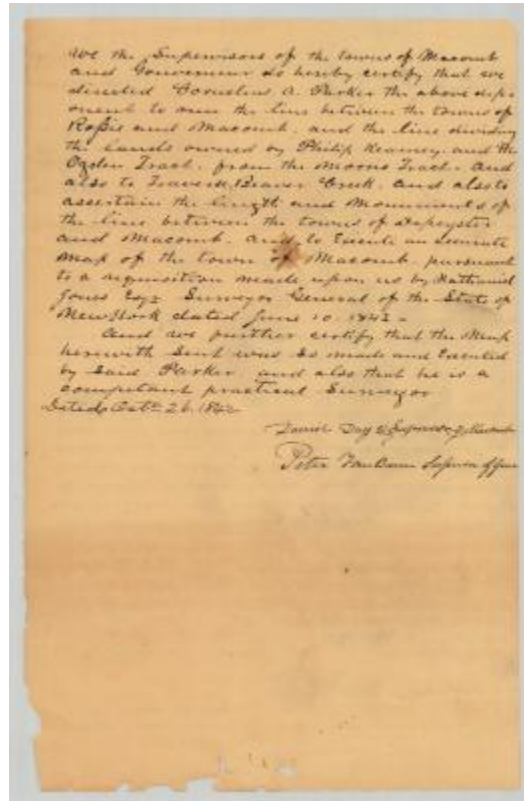 We the Supervisors of the towns of Macomb
and Gouverneur do hereby certify that we
directed Cornelius A. Parker the above depo
nent to run the line between the towns of
Rossie and Macomb. and the line dividing
the lands owned by Philip Kearney. and the
Ogden Tract. from the Moons Tract. and
also to Traverse Beaver Creek. and also to
assertain the length and Monuments of
the line between the towns of Depeyster
and Macomb. and to Execute an accurate
Map of the town of Macomb. pursuant
to a requisition made upon us by Nathaniel
Jones Esqr Surveyor General of the State of
New York dated June 10. 1842 -
And we further certify that the Map
herewith Sent was so made and Executed
by Said Parker and also that he is a
competant practical Surveyor
Dated Oct 26. 1842
David Day Supervisor of Macomb
Peter Van Buren Supervisor of Gouv